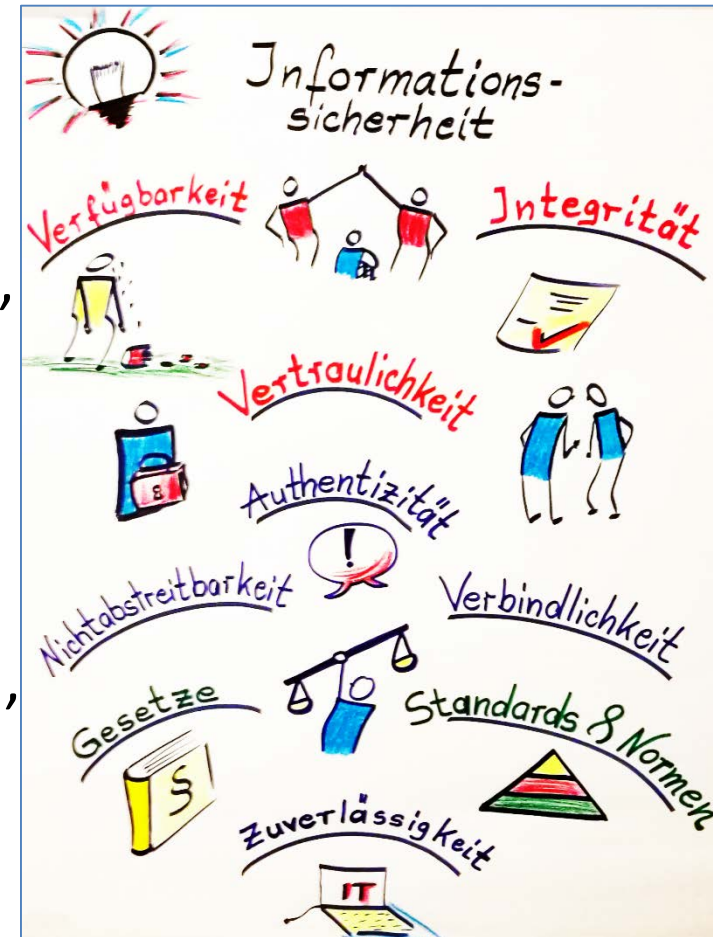 Informations-
sicherheit
Verfügbarkeit
Integrität
,
Vertraulichkeit
8
Authentizität
!
Nichtabstreitbarkeit
Verbindlichkeit
,
Gesetze
Standards & Normen
§
Zuverlässigkeit
IT